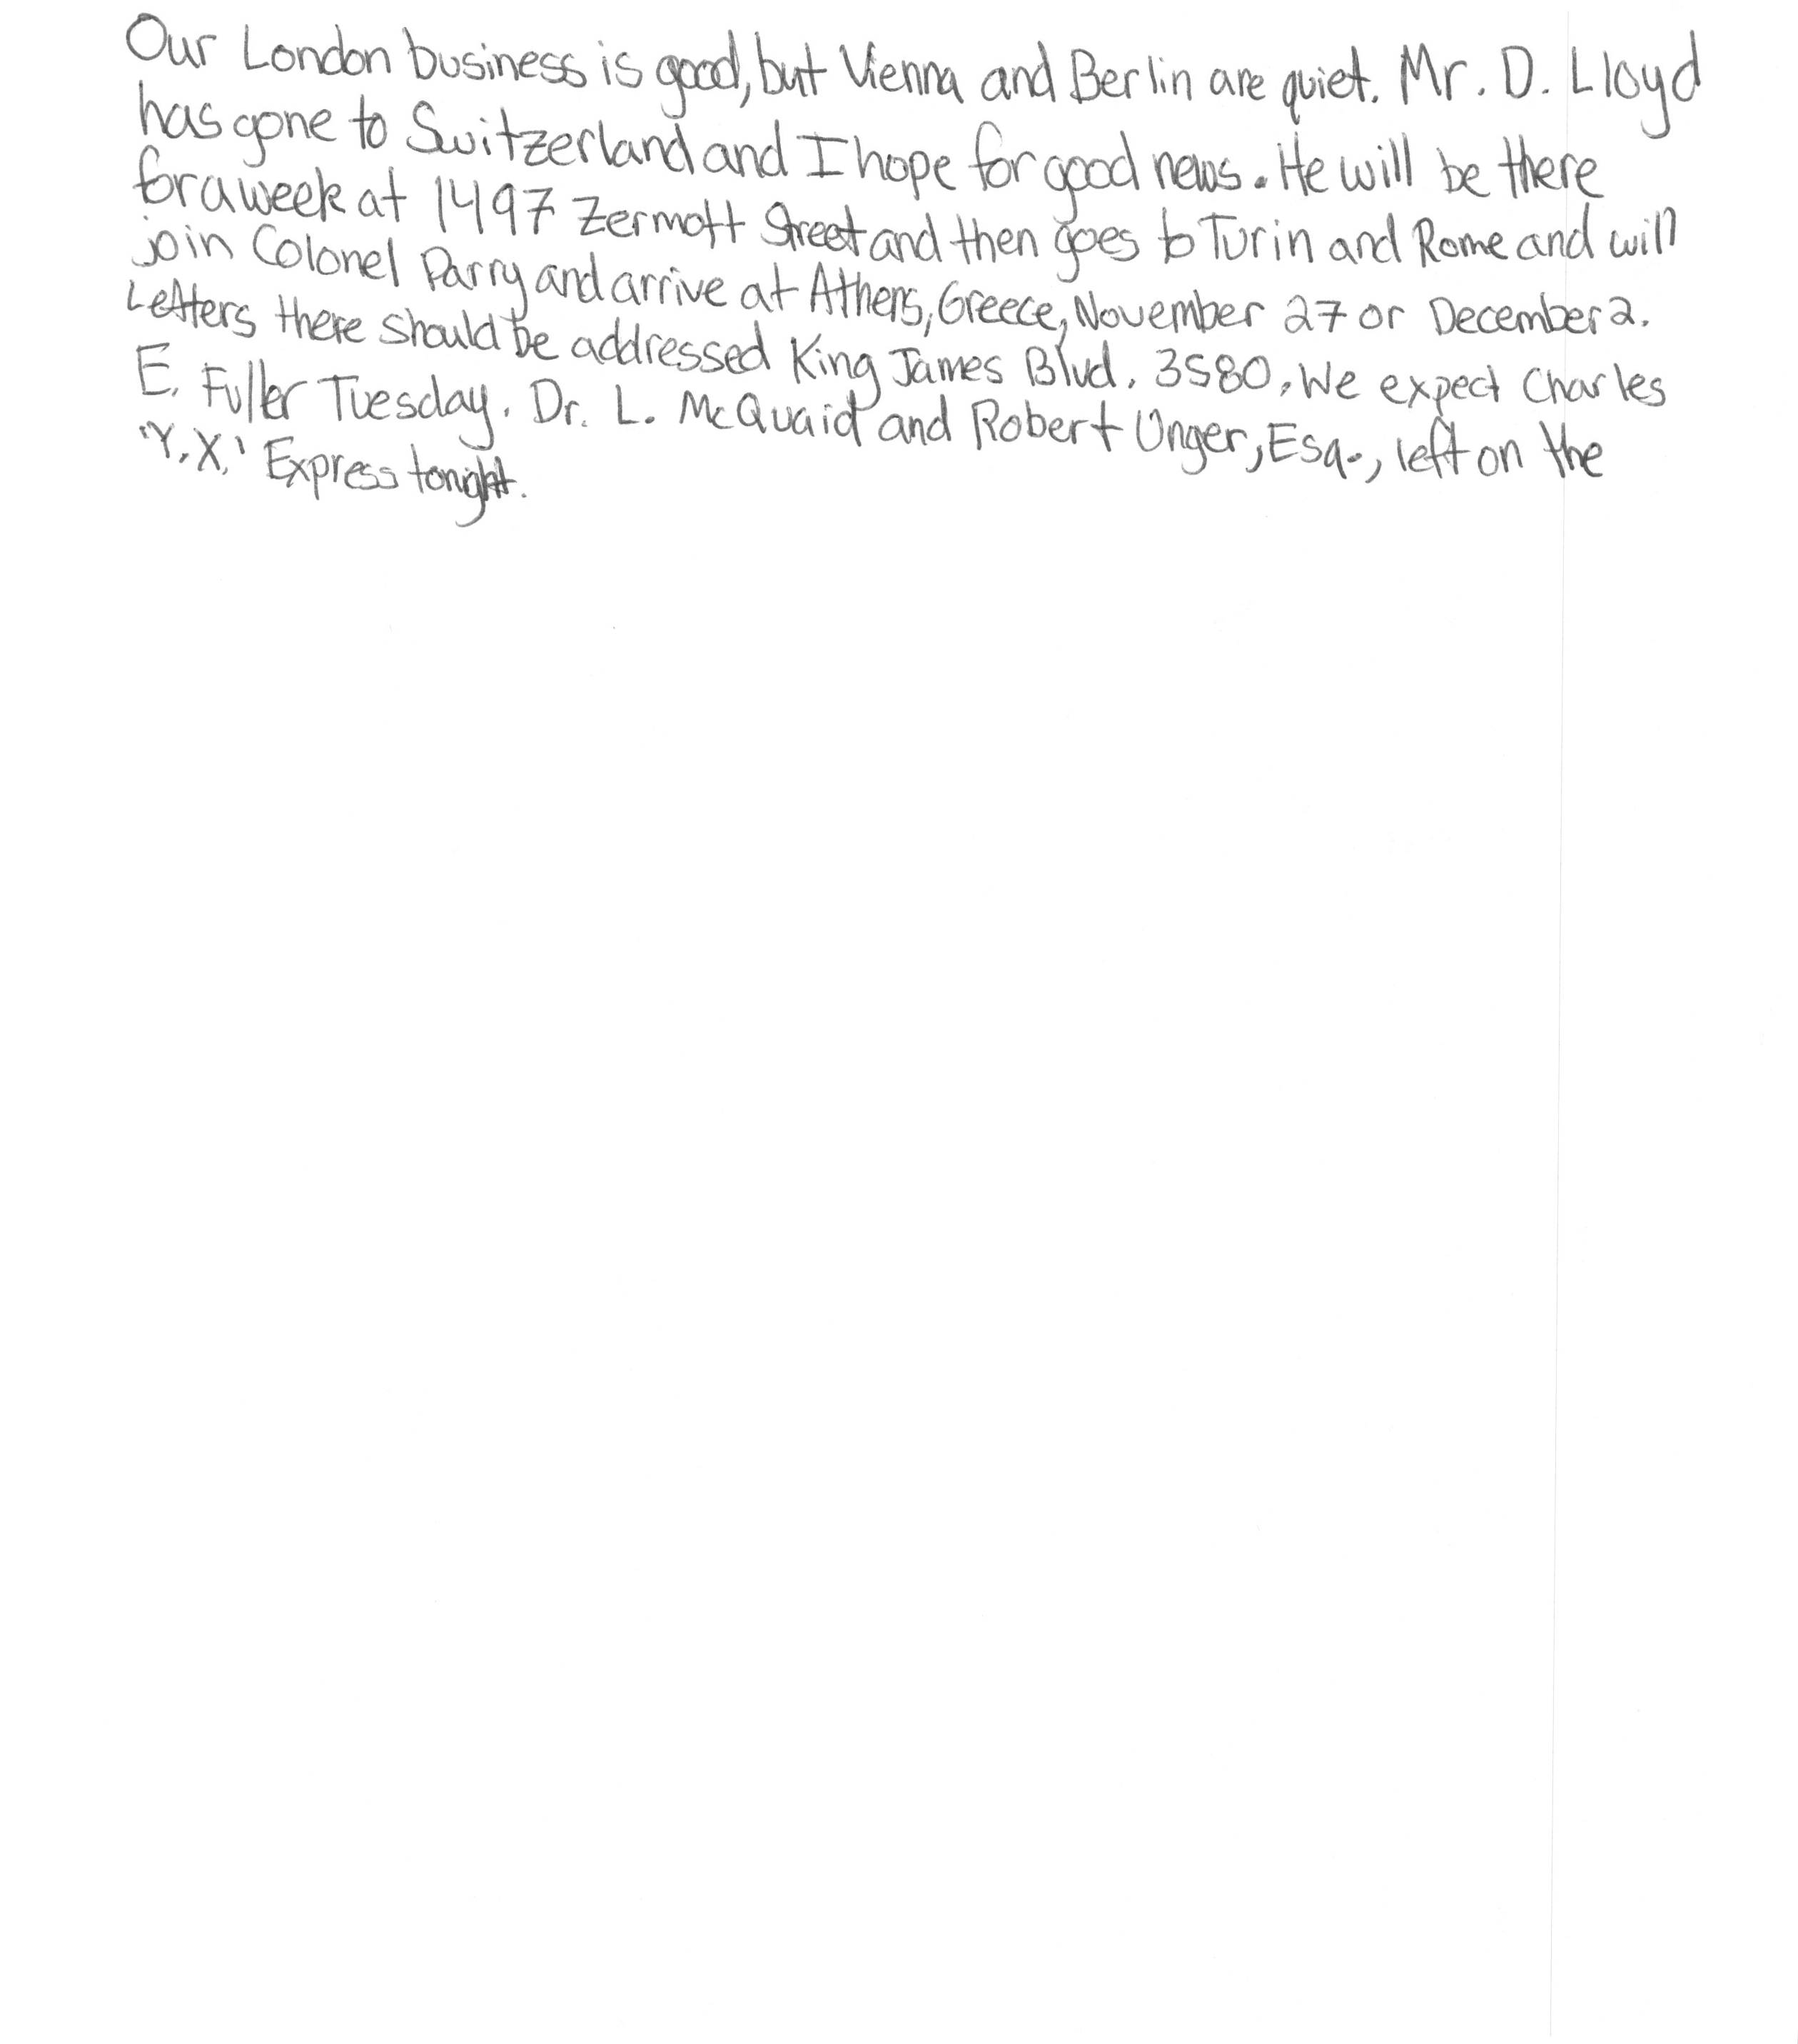 Our London business is good, but Vienna and Berlin are quiet. Mr. D. Lloyd
has gone to Switzerland and I hope for good news. He will be there
for a week at 1497 Zermott Street and then goes to Turin and Rome and will
join Colonel Parry and arrive at Athens, Greece, November 27 or December 2.
Letters there should be addressed King James Blvd. 3580. We expect Charles
E. Fuller Tuesday. Dr. L. McQuaid and Robert Unger, Esq., left on the
"Y.X." Express tonight.